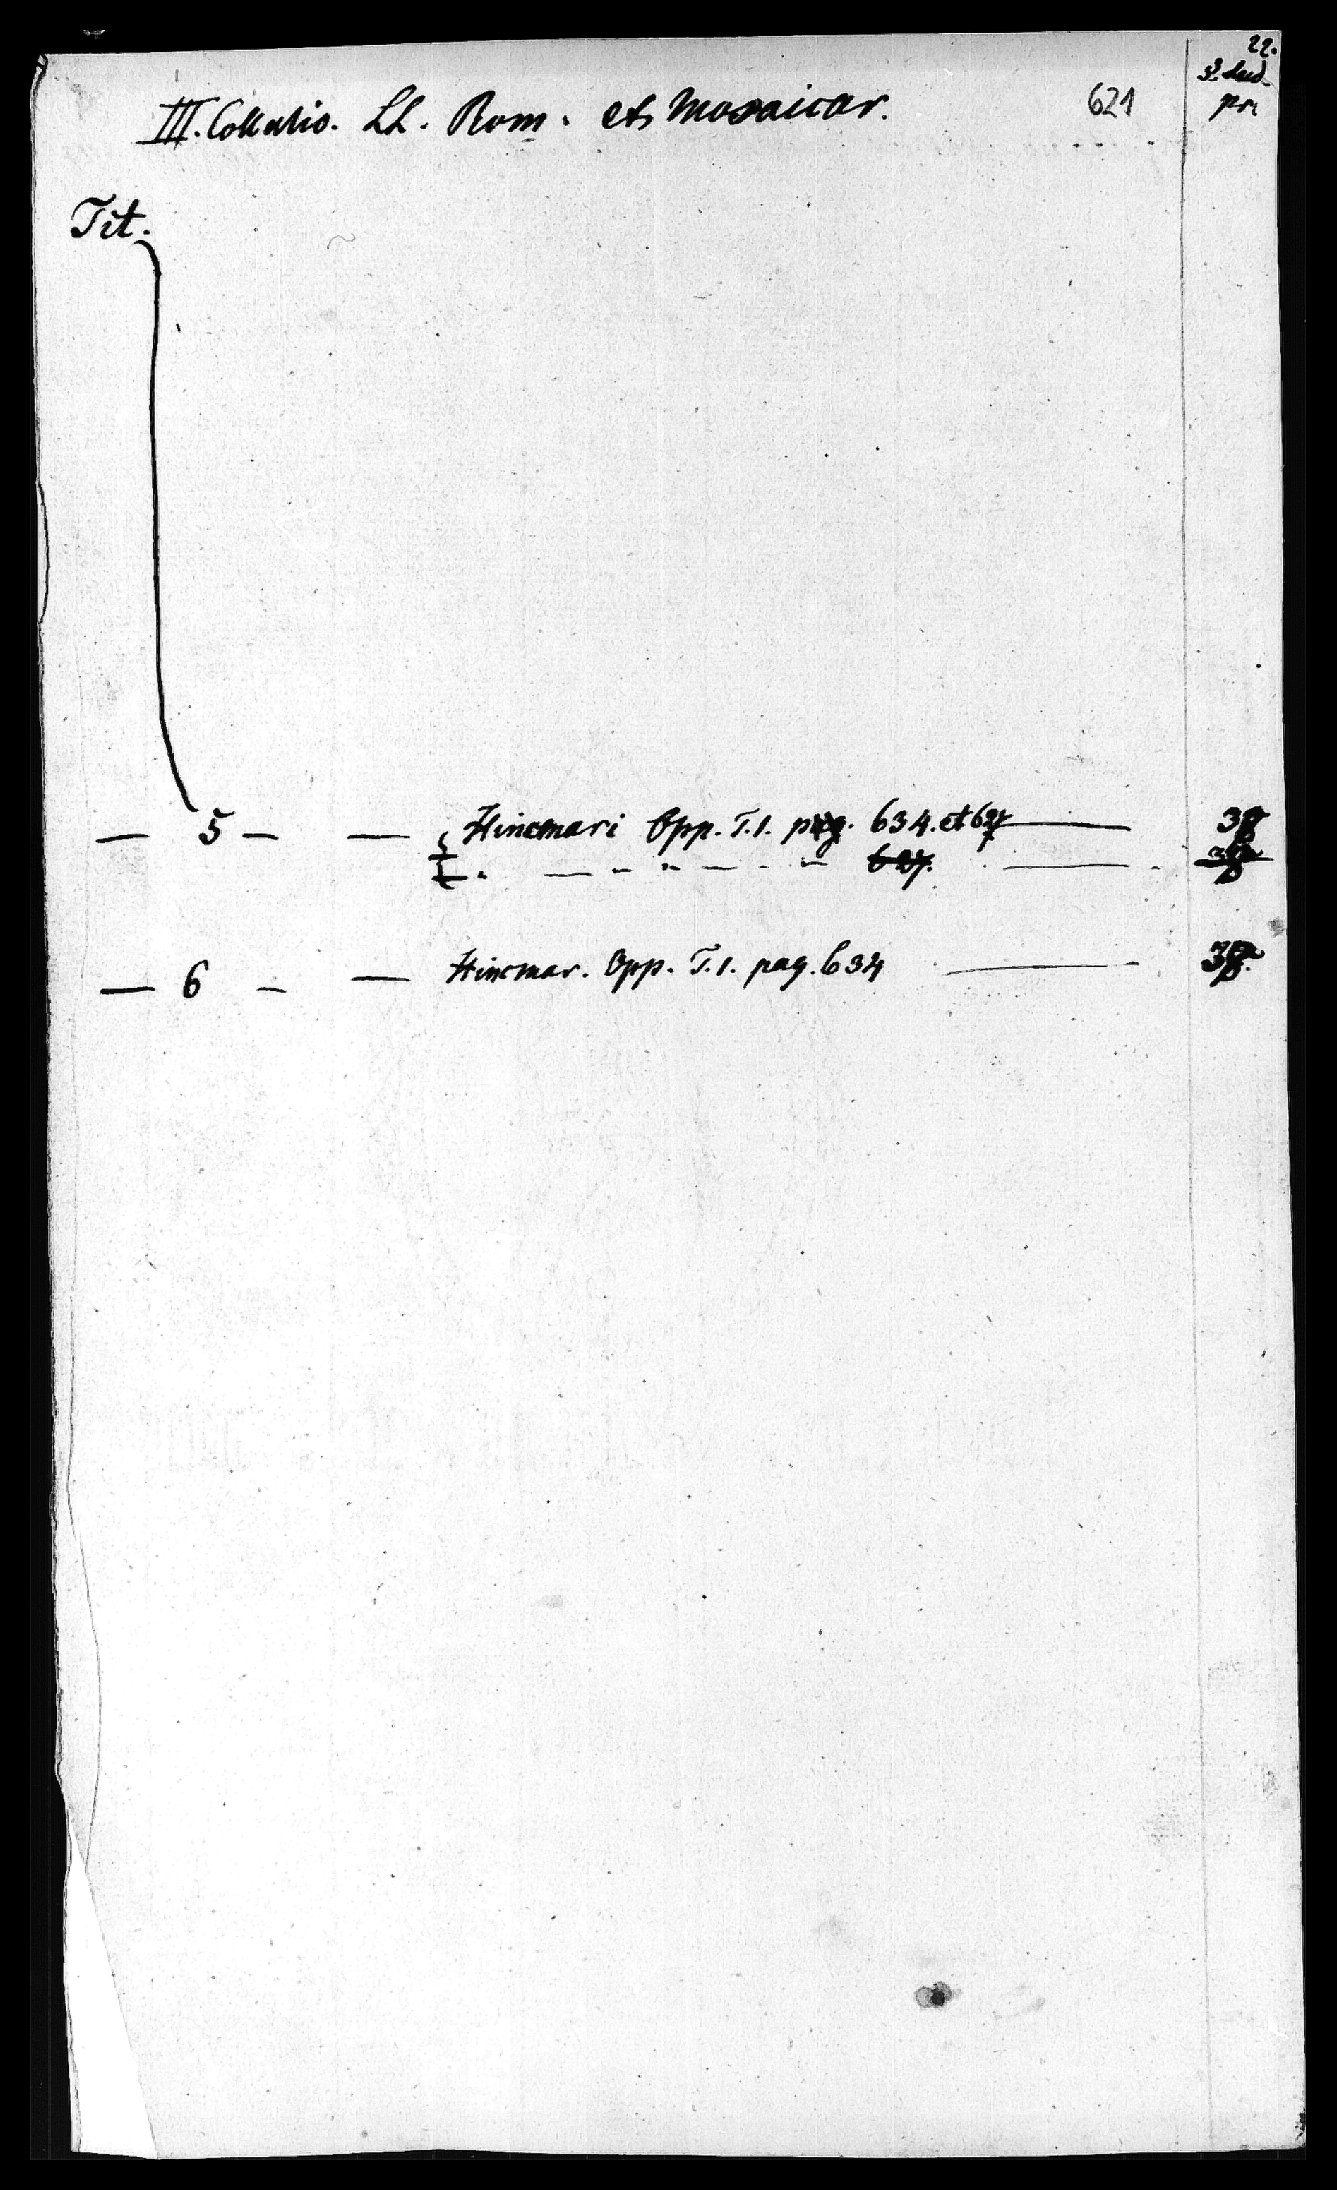 22.
III. Collatio. LL. Rom. et Mosaicar. 621
Tit.
— 5 — — Hincmari Opp. T. 1. pag. 634. et 627
627.
— 6 — — Hincmar. Opp. T. 1. pag. 634